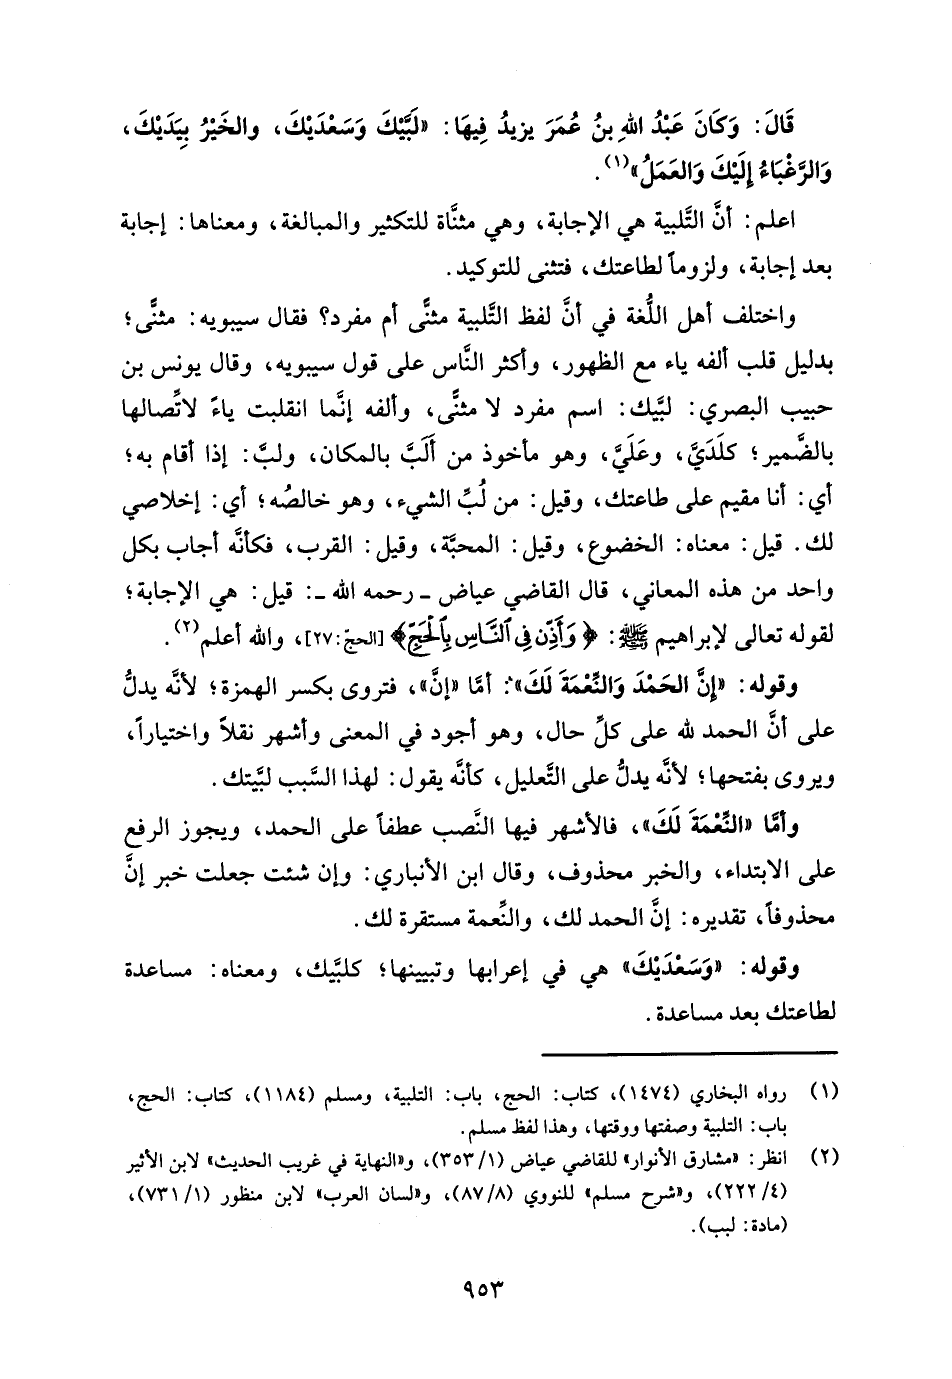 قَالَ: وَكَانَ عَبْدُ اللهِ بنُ عُمَرَ يزيدُ فِيهَا: «لَبَّيْكَ وَسَعْدَيْكَ، والخَيْرُ بِيَدَيْكَ،
وَالرَّغْبَاءُ إِلَيْكَ وَالعَمَلُ»(١).
اعلم: أنَّ التَّلبية هي الإجابة، وهي مثنَّاة للتكثير والمبالغة، ومعناها: إجابة
بعد إجابة، ولزوماً لطاعتك، فتثنى للتوكيد.
واختلف أهل اللُّغة في أنَّ لفظ التَّلبية مثنًّى أم مفرد؟ فقال سيبويه: مثنًّى؛
بدليل قلب ألفه ياء مع الظهور، وأكثر النَّاس على قول سيبويه، وقال يونس بن
حبيب البصري: لبَّيك: اسم مفرد لا مثنًّى، وألفه إنَّما انقلبت ياءً لاتِّصالها
بالضَّمير؛ كلَدَيَّ، وعَلَيَّ، وهو مأخوذ من أَلَبَّ بالمكان، ولبَّ: إذا أقام به؛
أي: أنا مقيم على طاعتك، وقيل: من لُبِّ الشيء، وهو خالصُه؛ أي: إخلاصي
لك. قيل: معناه: الخضوع، وقيل: المحبَّة، وقيل: القرب، فكأنَّه أجاب بكل
واحد من هذه المعاني، قال القاضي عياض ـ رحمه الله ـ: قيل: هي الإجابة؛
لقوله تعالى لإبراهيم ﷺ: ﴿وَأَذِّن فِي ٱلنَّاسِ بِٱلْحَجِّ﴾ [الحجّ: ٢٧]، والله أعلم(٢).
وقوله: «إِنَّ الحَمْدَ وَالنِّعْمَةَ لَكَ»: أمَّا «إنَّ»، فتروى بكسر الهمزة؛ لأنَّه يدلُّ
على أنَّ الحمد لله على كلِّ حال، وهو أجود في المعنى وأشهر نقلاً واختياراً،
ويروى بفتحها؛ لأنَّه يدلُّ على التَّعليل، كأنَّه يقول: لهذا السَّبب لبَّيتك.
وأمَّا «النِّعْمَةَ لَكَ»، فالأشهر فيها النَّصب عطفاً على الحمد، ويجوز الرفع
على الابتداء، والخبر محذوف، وقال ابن الأنباري: وإن شئت جعلت خبر إنَّ
محذوفاً، تقديره: إنَّ الحمد لك، والنِّعمة مستقرة لك.
وقوله: «وَسَعْدَيْكَ» هي في إعرابها وتبيينها؛ كلبَّيك، ومعناه: مساعدة
لطاعتك بعد مساعدة.
(١) رواه البخاري (١٤٧٤)، كتاب: الحج، باب: التلبية، ومسلم (١١٨٤)، كتاب: الحج،
باب: التلبية وصفتها ووقتها، وهذا لفظ مسلم.
(٢) انظر: «مشارق الأنوار» للقاضي عياض (١/ ٣٥٣)، و«النهاية في غريب الحديث» لابن الأثير
(٤/ ٢٢٢)، و«شرح مسلم» للنووي (٨/ ٨٧)، و«لسان العرب» لابن منظور (١/ ٧٣١)،
(مادة: لبب).
٩٥٣